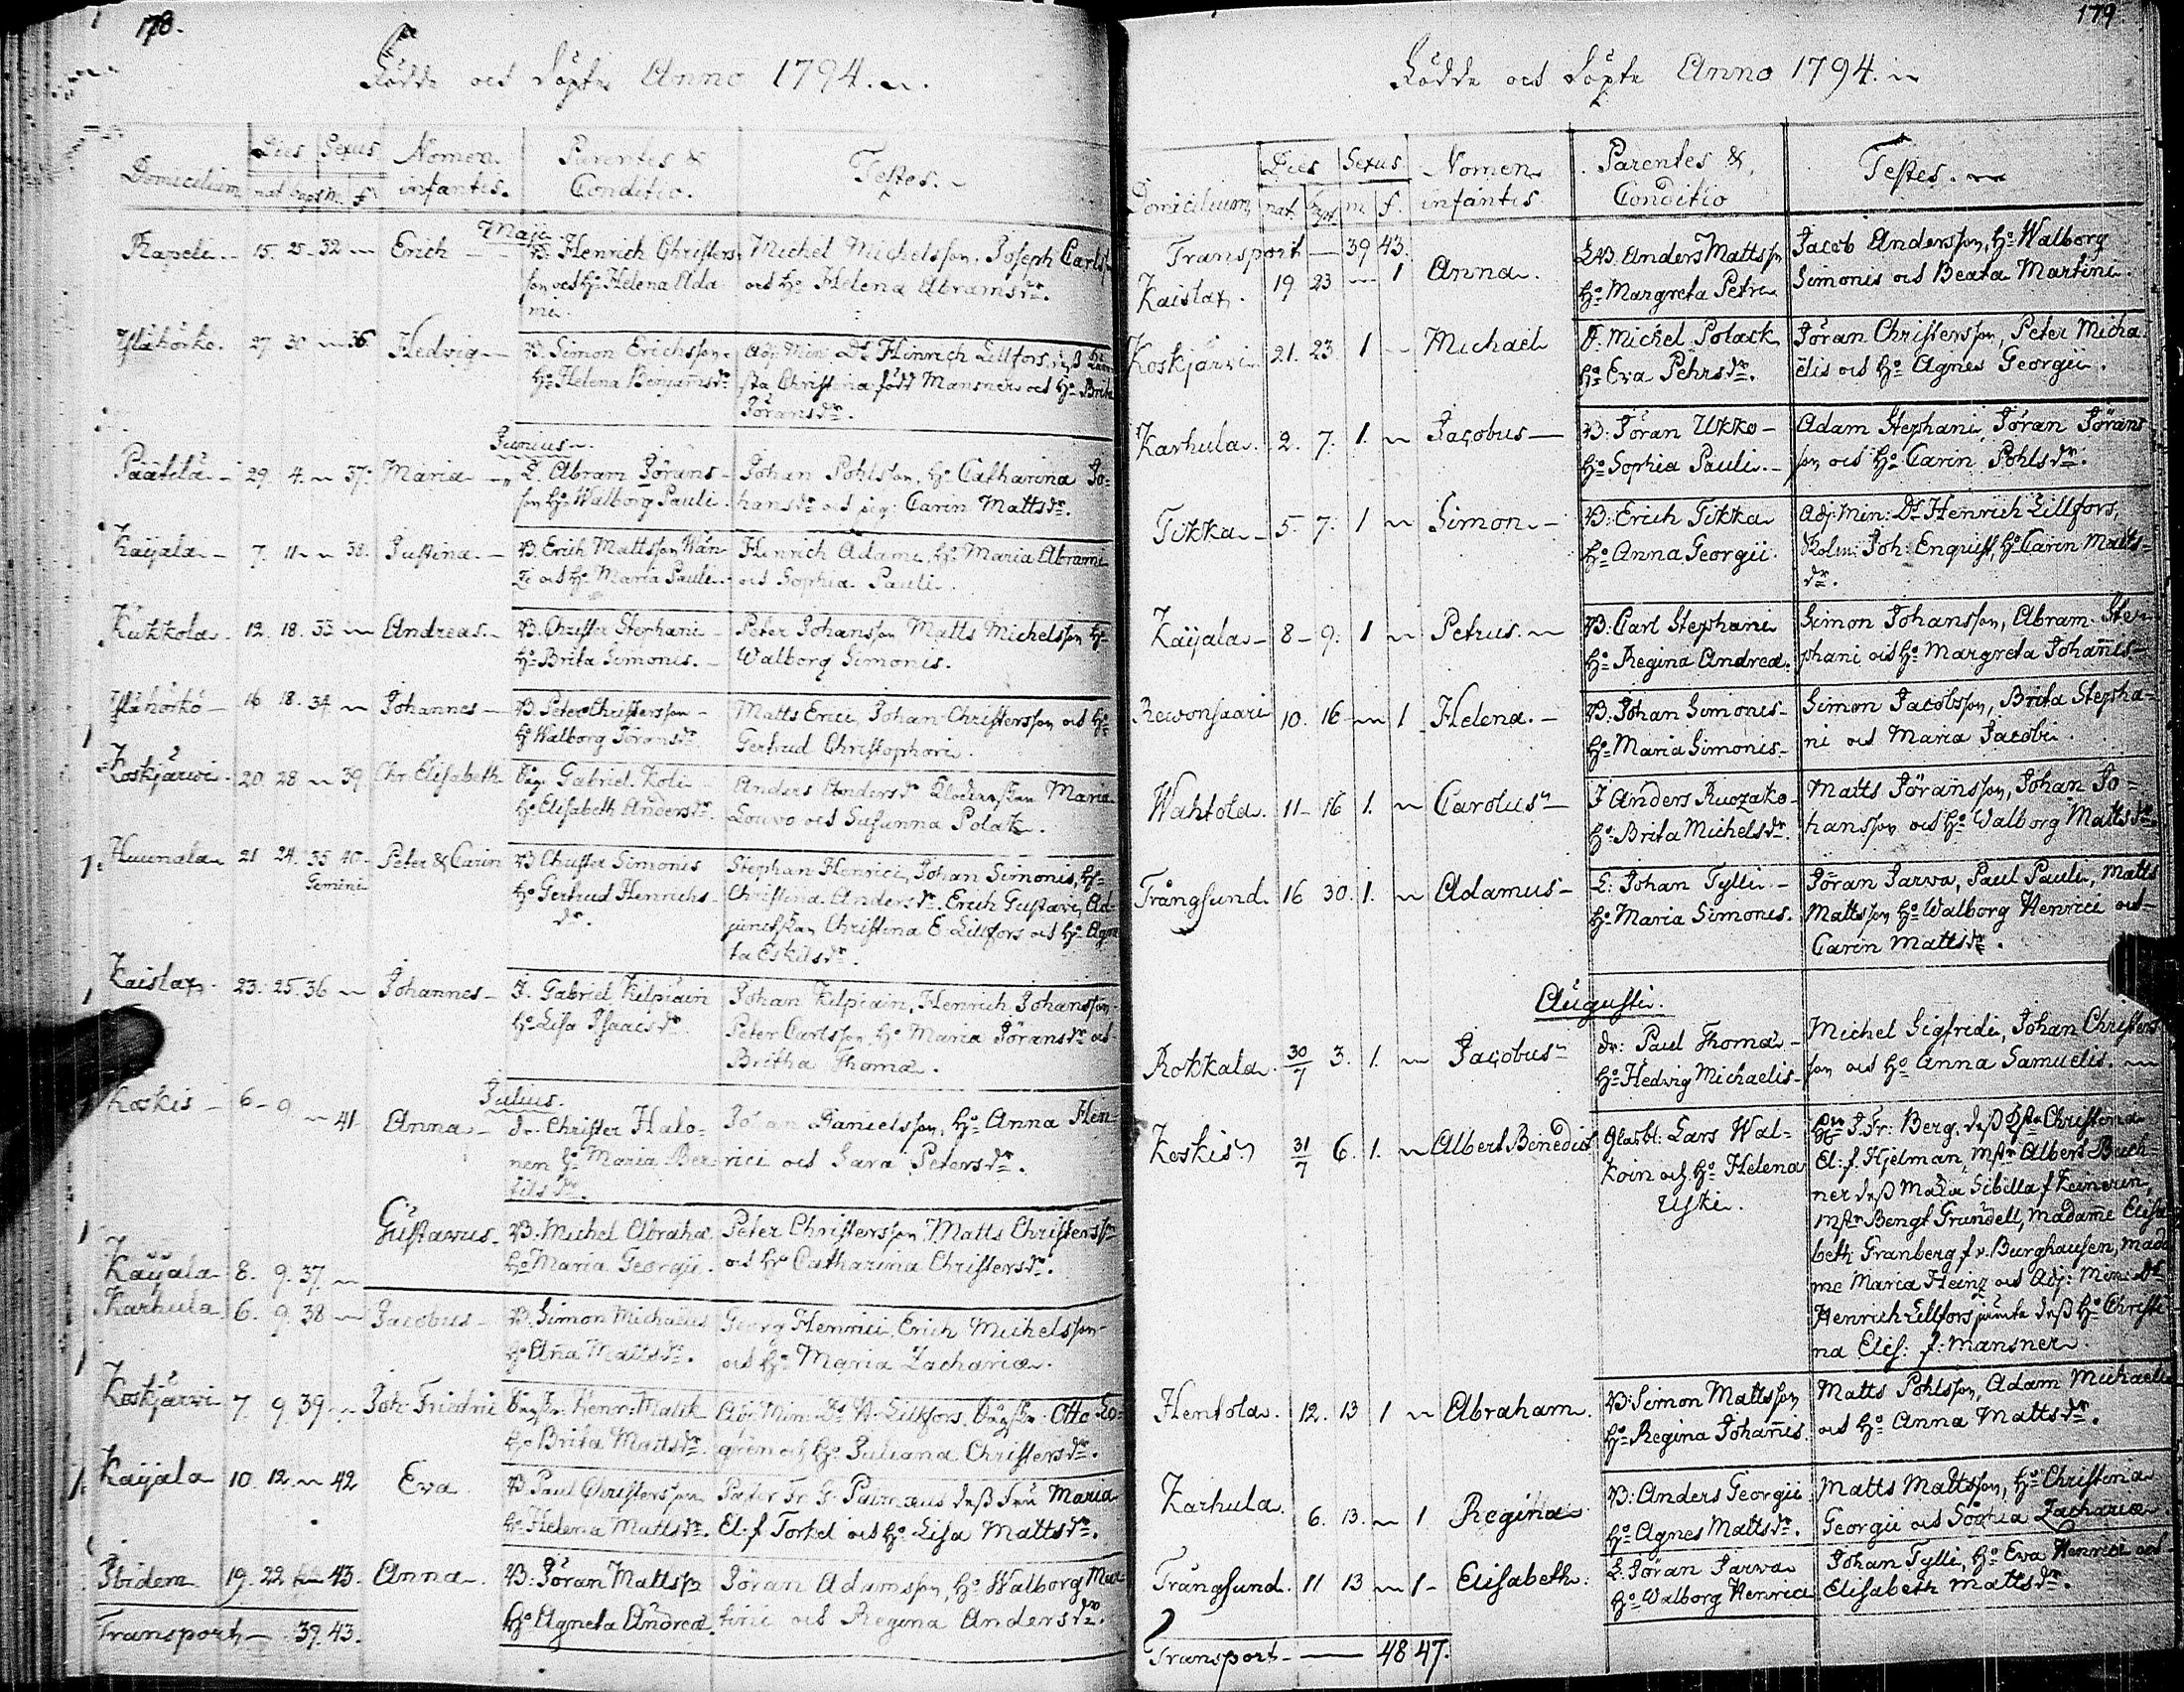 178.
Födde och Döpte Anno 1794.
Domicilium Dies Sexus Nomen infantis. Parentes & Conditio. Testes.
nat. bapt. m. f.
Maji
Rapeli 15. 25. 32 — Erich — B. Henrich Christers Michel Michelsson, Joseph Carls
son och H:o Helena Ada och H:o Helena Abramsdr.
mi.
Ylähörkö. 27 30 — 36 Hedvig — B. Simon Erichsson Adj: Min: Dn Hinrich Lillfors, dess
H:o Helena Benjamsdr sta Christina född Mansner och H:o Brita
Jöransdr.
Junius.
Päätilä — 29. 4. — 37. Maria — L. Abram Jörans Johan Pohlsson, H:o Catharina Jo=
son H:o Walborg Pauli. hansdr och pig: Carin Mattsdr.
Käÿälä — 7. 11. — 38. Justina. — B. Erich Mattsson Wän Hinrich Adami, H:o Maria Abrami
och H:o Maria Pauli. och Sophia Pauli.
Kukkola. 12. 18. 33 — Andreas. — B. Christer Stephani Peter Johansson Matts Michelsson H:o
H:o Brita Simonis. Walborg Simonis.
Ylähörkö — 16 18. 34 — Johannes — B. Peter Christersson Matts Erici, Johan Christersson och H:o
H:o Walborg Jöransdr Gertrud Christophori.
Koskjärwi. 20 28 — 39 Chr. Elisabeth Gabriel Koli Anders Andersdr Maria
H:o Elisabeth Andersdr. Louvo och Susanna Polak.
Huunala 21 24. 35 40. Peter & Carin B Christer Simonis Stephan Henrici, Johan Simonis, H:o
Gemini H:o Gertrud Henrichs Christina Andersdr. Erich Gustavi, Ad=
dr. junctskan Christina E. Lillfors och H:o Agne
ta Eskilsdr.
Kaislax. 23. 25. 36 — Johannes — J. Gabriel Kilpiäin Johan Kilpiäin, Henrich Johansson
H:o Lisa Isaacsdr Peter Carlsson, H:o Maria Jöransdr och
Britha Thomæ.
Julius.
Koskis — 6 — 9 — 41. Anna — dr. Christer Halo= Johan Danielsson, H:o Anna Hen=
nen H:o Maria Ber= rici och Sara Petersdr.
tilsdr.
Käÿälä 8. 9. 37. — Gustavus. B. Michel Abraha. Peter Christersson, Matts Christersson
H:o Maria Georgii. och H:o Catharina Christersdr.
Karhula 6. 9. 38 — Jacobus — B. Simon Michaelis Georg Henrici, Erich Michelsson
H:o Aña Mattsdr. och H:o Maria Zachariæ.
Koskjärvi 7. 9. 39 — Joh. Friedric Henr: Malik Adj: Min: Dn H. Lillfors, Otto Lo=
H:o Brita Mattsdr. grén och H:o Juliana Christersdr.
Käÿälä 10. 12. — 42 Eva B. Paul Christersson Pastor Fr. G. Paimæus dess Fru Maria
H:o Helena Mattsdr. El: f Torkel och H:o Lisa Mattsdr.
Ibidem 19. 22 — 43. Anna. B: Jöran Mattss Jöran Adamsson, H:o Walborg Mar
H:o Agneta Andreæ. tini och Regina Andersdr.
Transport — 39. 43.
179.
Födde och Döpte Anno 1794.
Domicilium Dies Sexus Nomen infantis. Parentes & Conditio Testes.
nat. bapt. m. f.
Transport — 39 43.
Kaislax. 19 23 — 1 Anna. LB. Anders Mattsson Jacob Andersson, H:o Walborg
H:o Margreta Petri Simonis och Beata Martini.
Koskjärvi 21. 23. 1 — Michael J. Michel Polack Jöran Christersson, Peter Micha
H:o Eva Pehrsdr. ëlis och H:o Agnes Georgii.
Karhula. 2. 7. 1. — Jacobus — B: Jöran Ukko — Adam Stephani, Jöran Jörans
H:o Sophia Pauli. — son och H:o Carin Pohlsdr.
Tikka — 5. 7. 1 — Simon. — B: Erich Tikka Adj: Min: Dn Henrich Lillfors,
H:o Anna Georgii. Joh: Enquist, H:o Carin Matts=
dr.
Käÿälä — 8 — 9. 1 — Petrus. — B: Carl Stephani Simon Johansson, Abram Ste=
H:o Regina Andreæ. phani och H:o Margreta Johañis —
Rewonsaari 10. 16 — 1 Helena. — B: Johan Simonis Simon Jacobsson, Brita Stepha=
H:o Maria Simonis ni och Maria Jacobi.
Wahtola. 11 — 16 1. — Carolus — J Anders Ruozako Matts Jöransson, Johan Jo=
H:o Brita Michelsdr. hansson och H:o Walborg Mattsdr.
Trångsund. 16 30. 1. — Adamus — L: Johan Tylli — Jöran Jarva, Paul Pauli, Matts
H:o Maria Simonis. Mattsson H:o Walborg Henrici och
Carin Mattsdr.
Augusti.
Rokkala. 30/7 3. 1. — Jacobus dr: Paul Thomæ — Michel Sigfridi, Johan Christers
H:o Hedvig Michaelis — son och H:o Anna Samuelis.
Koskis 31/7 6. 1. — Albert Benedict Glasbl: Lars Wal= J. Fr: Berg, dess Christina
koin och H:o Helena El: f. Hjelman, mstr Albert Buch=
Uski. ner dess Madm Sibilla f Keinerin,
mstr Bengt Grundell, Madame Elisa
beth Granberg f v. Burghausen, mada
me Maria Heinz och Adj: Min: Dn
Henrich Lillfors jämte dess H:o Christi
na Elis: f: Mansner.
Hentola. 12. 13 1 — Abraham. B: Simon Mattsson Matts Pohlsson, Adam Michaelis
H:o Regina Johañis. och H:o Anna Mattsdr.
Karhula 6. 13. — 1 Regina B: Anders Georgii Matts Mattsson, H:o Christina
H:o Agnes Mattsdr. Georgii och Sophia Zachariæ
Trångsund. 11 13 — 1 — Elisabeth: L: Jöran Jarva Johan Tylli, H:o Eva Henrici och
H:o Walborg Henrici Elisabeth Mattsdr.
Transport — 48 47.